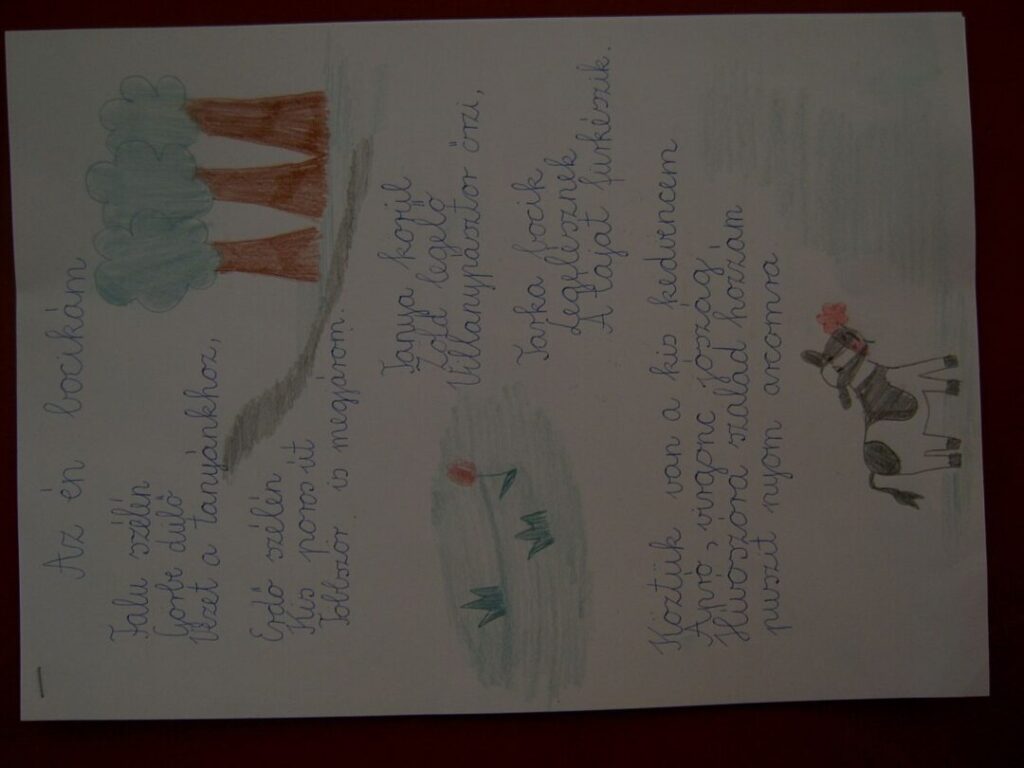 Az én bocikám
Falu szélén
Görbe dűlő
Vezet a tanyánkhoz,
Erdő szélén
Kis poros út
Többször is megjárom.
Tanya körül
Zöld legelő
Villanypásztor őrzi,
Tarka bocik
Legelésznek
A tájat fürkészik.
Köztük van a kis kedvencem
Apró, virgonc jószág,
Hívószóra szalad hozzám
puszit nyom arcomra